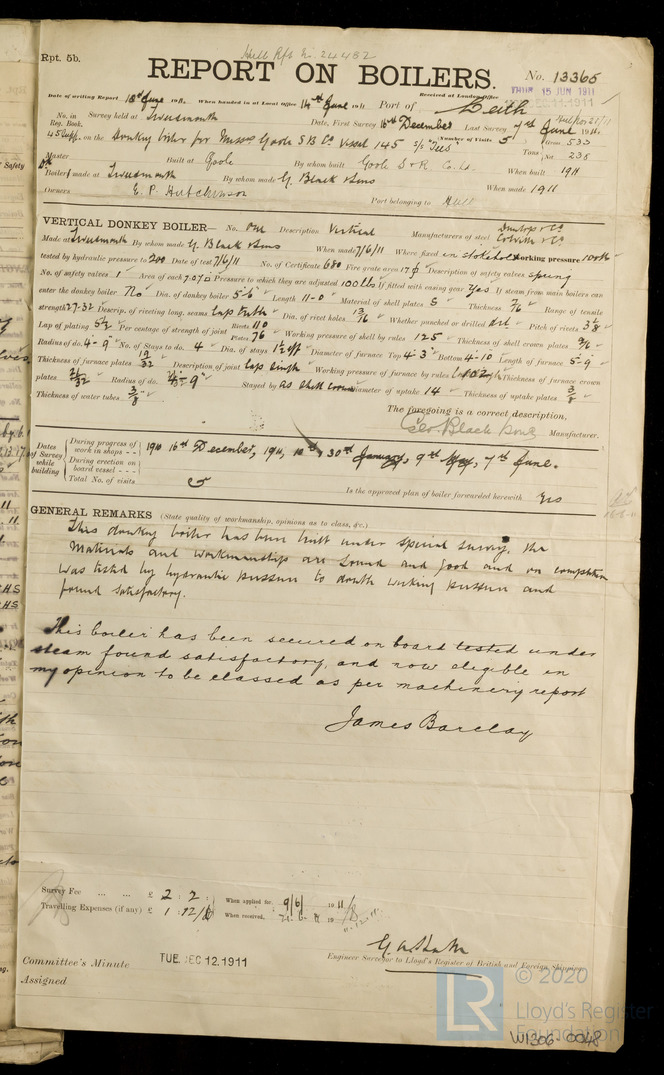 Rpt. 5b.
Hull Rpt. No. 24482
REPORT ON BOILERS.
No. 13365
Received at London Office THUR 15 JUN 1911
Date of writing Report 13th June 1911. When handed in at Local Office 14th June 1911 Port of Leith
No. in Reg. Book. Survey held at Tweedmouth Date, First Survey 16th December Last Survey 7th June 1911.
45 Supp. on the Donkey boiler for Messrs Goole S B Co Vessel 145 S/S "Tees" (Number of Visits 5) Gross 533
Tons Net 236
Master Built at Goole By whom built Goole S & R. Co. Ld When built 1911
Boiler made at Tweedmouth By whom made G. Black & Sons When made 1911
Owners E. P. Hutchinson Port belonging to Hull
VERTICAL DONKEY BOILER— No. One Description Vertical Manufacturers of steel Dunlop & Co Colville & Co
Made at Tweedmouth By whom made G. Black & Sons When made 7/6/11 Where fixed in stokehold Working pressure 100 lb
tested by hydraulic pressure to 200 Date of test 7/6/11 No. of Certificate 680 Fire grate area 17 Description of safety valves spring
No. of safety valves 1 Area of each 7.07 Pressure to which they are adjusted 100 lbs If fitted with easing gear Yes If steam from main boilers can
enter the donkey boiler No Dia. of donkey boiler 5-6 Length 11-0 Material of shell plates S Thickness 7/16 Range of tensile
strength 27-32 Descrip. of riveting long. seams Lap Dia. of rivet holes 13/16 Whether punched or drilled Pitch of rivets 3 1/8
Lap of plating 5 1/2 Per centage of strength of joint Rivets 110 Plates 76 Working pressure of shell by rules 125 Thickness of shell crown plates 9/16
Radius of do. 4-9 No. of Stays to do. 4 Dia. of stays 1 1/2 Diameter of furnace Top 4-3 Bottom 4-10 Length of furnace 5-9
Thickness of furnace plates 19/32 Description of joint Lap single Working pressure of furnace by rules 102 Thickness of furnace crown
plates 21/32 Radius of do. Stayed by as shell crown Diameter of uptake 14 Thickness of uptake plates 3/8
Thickness of water tubes 3/8
The foregoing is a correct description,
Geo. Black & Sons Manufacturer.
Dates of Survey while building
During progress of work in shops - - 1910 16th December, 1911, 30th January, 9th May, 7th June.
During erection on board vessel - - -
Total No. of visits
Is the approved plan of boiler forwarded herewith Yes
GENERAL REMARKS (State quality of workmanship, opinions as to class, &c.)
This donkey boiler has been built under special survey. The
Materials and workmanship are sound and good and on completion
was tested by hydraulic pressure to double working pressure and
found satisfactory.
This boiler has been secured on board tested under
steam found satisfactory, and now eligible in
my opinion to be classed as per machinery report
James Barclay
Survey Fee ... ... £ 2 : 2 : When applied for 9/6/1911
Travelling Expenses (if any) £ 1 : 12/ When received,
Engineer Surveyor to Lloyd's Register of British and Foreign Shipping.
Committee's Minute TUE. DEC 12. 1911
Assigned
© 2020
LR
Lloyd's Register
Foundation
W1306-0048